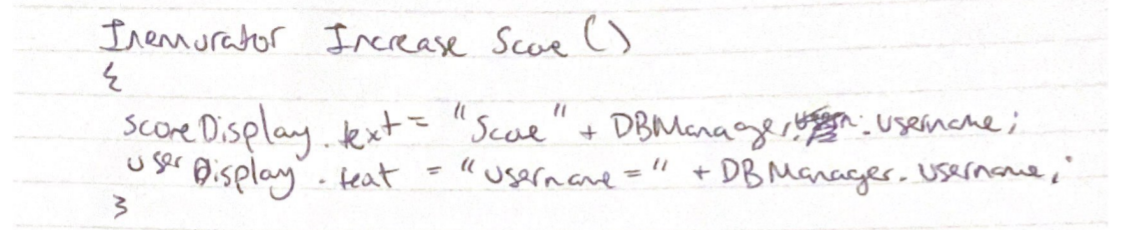 Inemurator Increase Scoe ()
{
scoreDisplay.text = "Scoe" + DBManager.username;
userDisplay.teat = "username=" + DBManager.username;
}